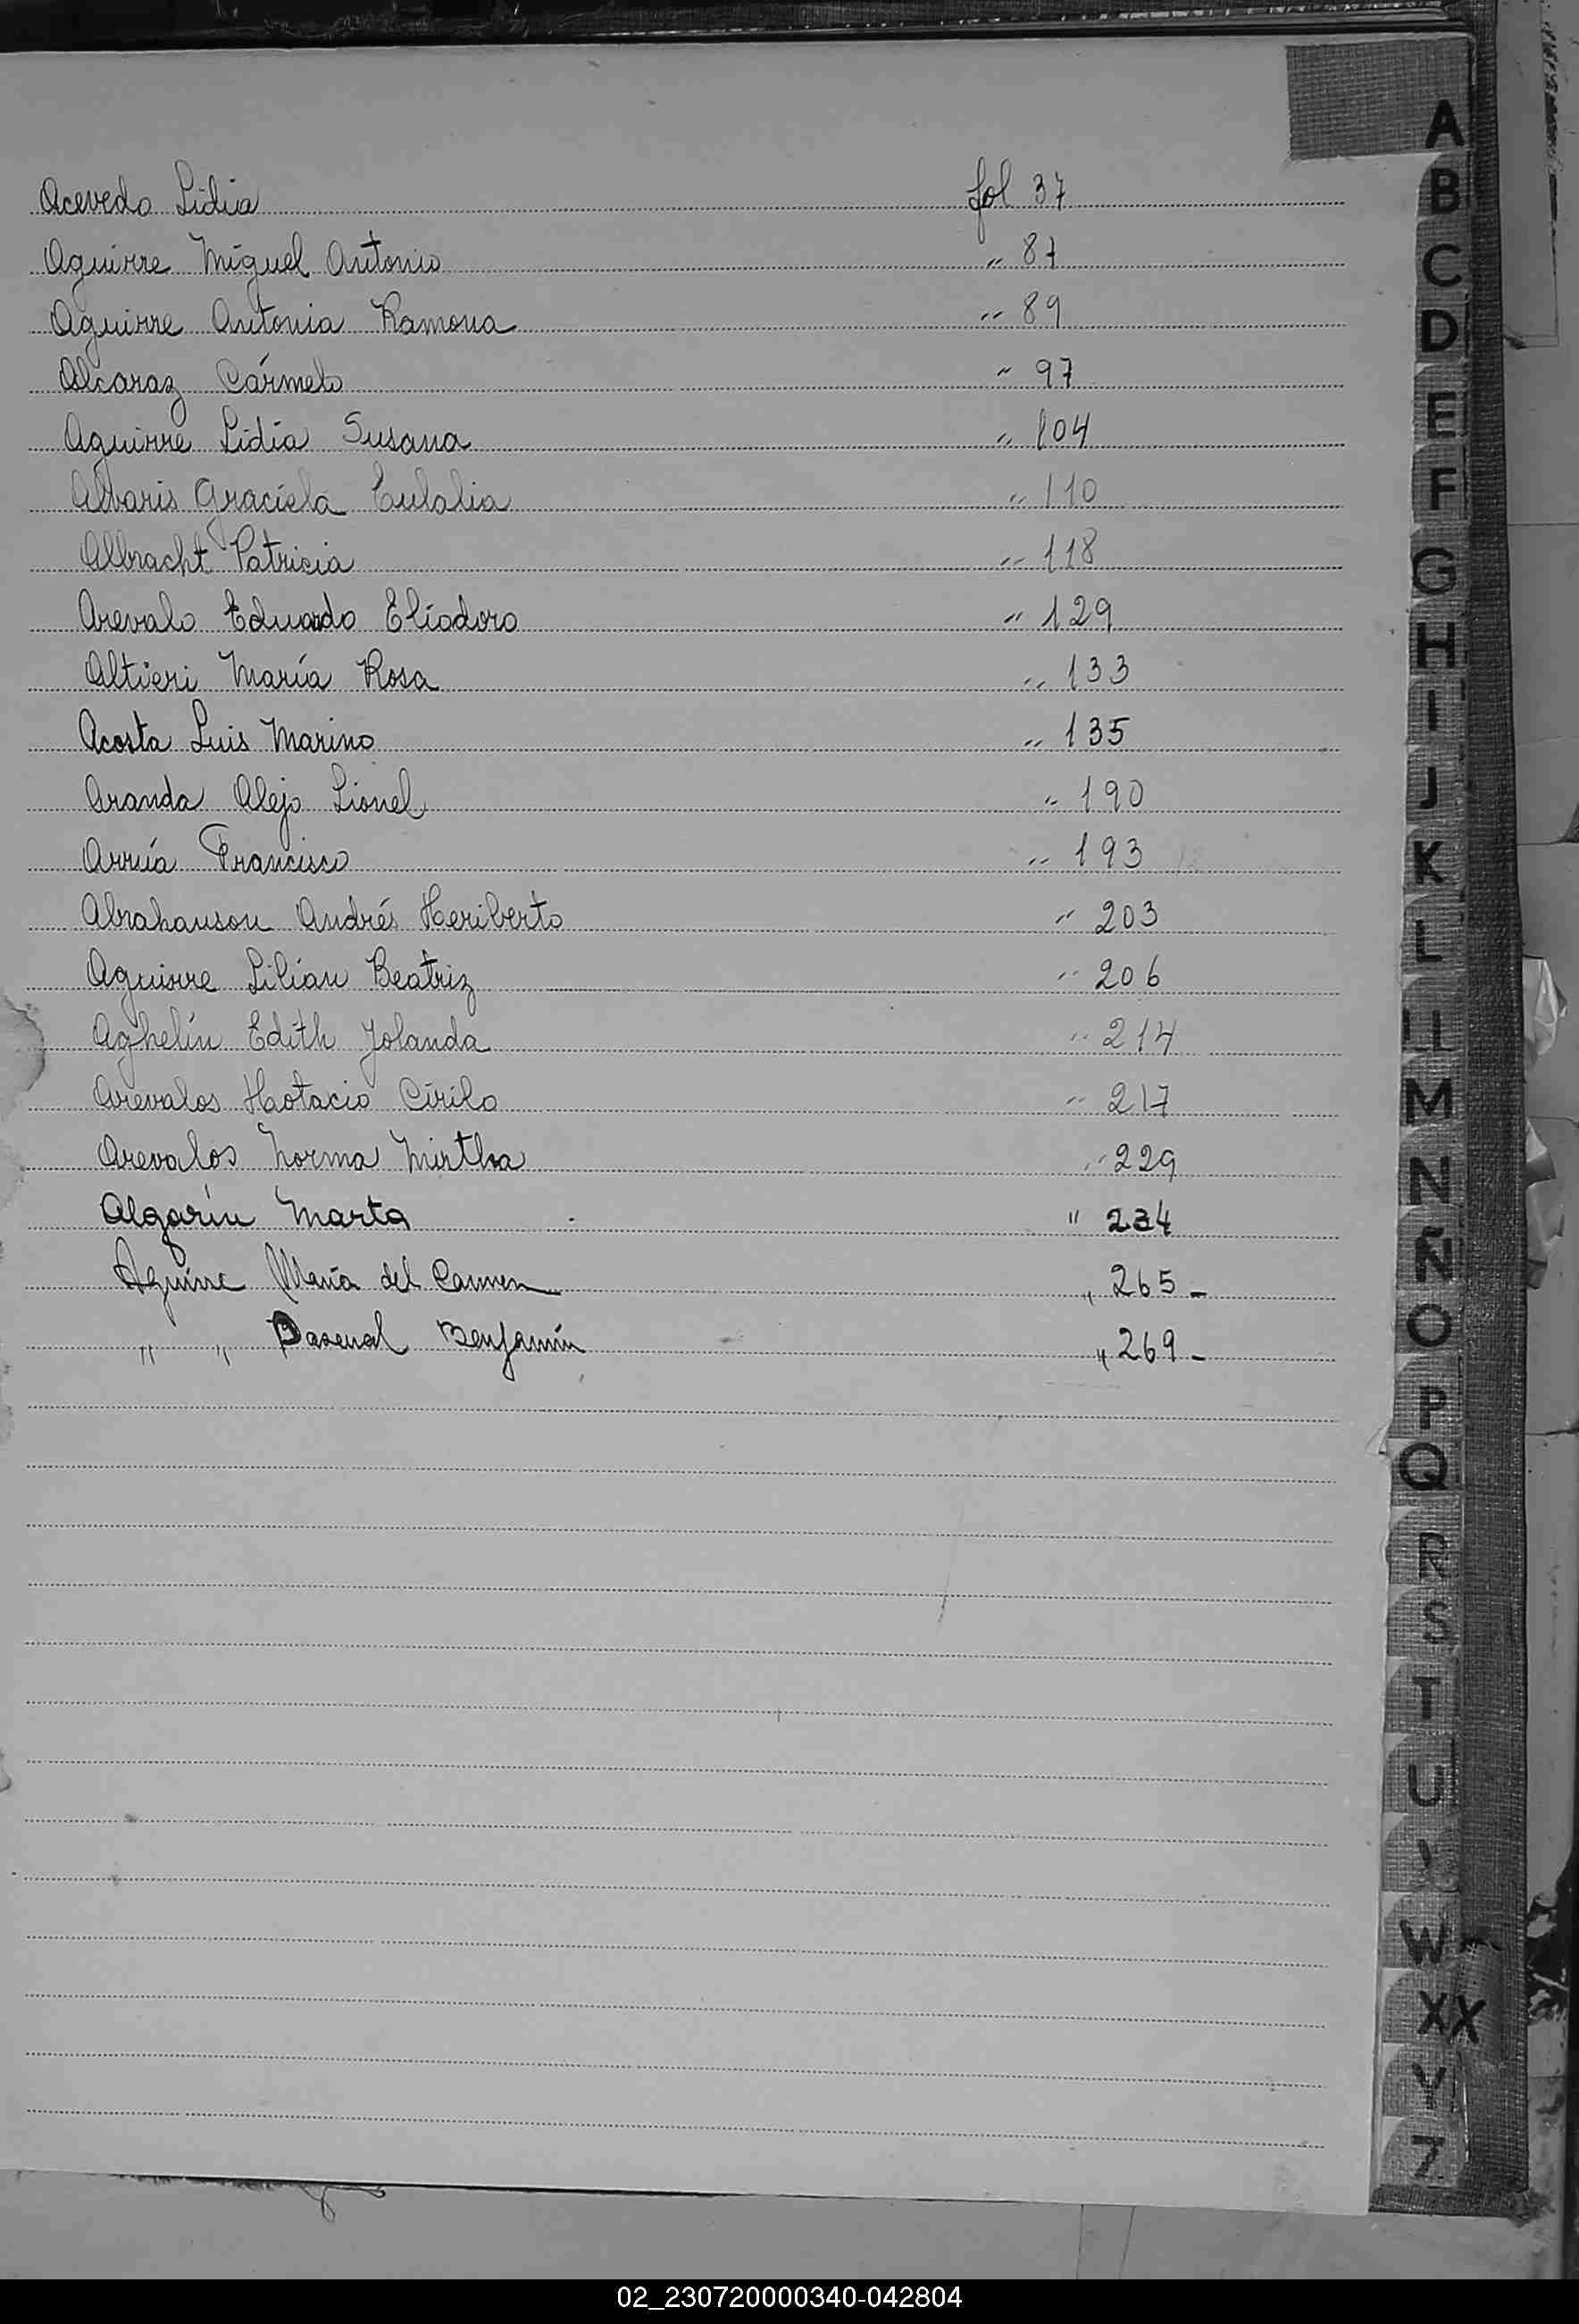 Acevedo Lidia fol 37
Aguirre Miguel Antonio " 87
Aguirre Antonia Ramona " 89
Alcaraz Cármelo " 97
Aguirre Lidia Susana " 104
Graciela Eulalia " 110
Albracht Patricia " 118
Arevalo Eduardo Eliodoro " 129
Altieri María Rosa " 133
Acosta Luis Marino " 135
Aranda Alejo Lionel " 190
Arrúa Francisco " 193
Abrahauson Andrés Heriberto " 203
Aguirre Lilian Beatriz " 206
Aghelín Edith Yolanda " 214
Arevalos Cirilo " 217
Arevalos Norma Mirtha " 229
Algarín Marta " 234
Aguirre María del Carmen " 265 -
" " Pascual Benjamín " 269 -
A
B
C
D
E
F
G
H
I
J
K
L
LL
M
N
Ñ
O
P
Q
R
S
T
U
W
X X
Y
Z
02_230720000340-042804